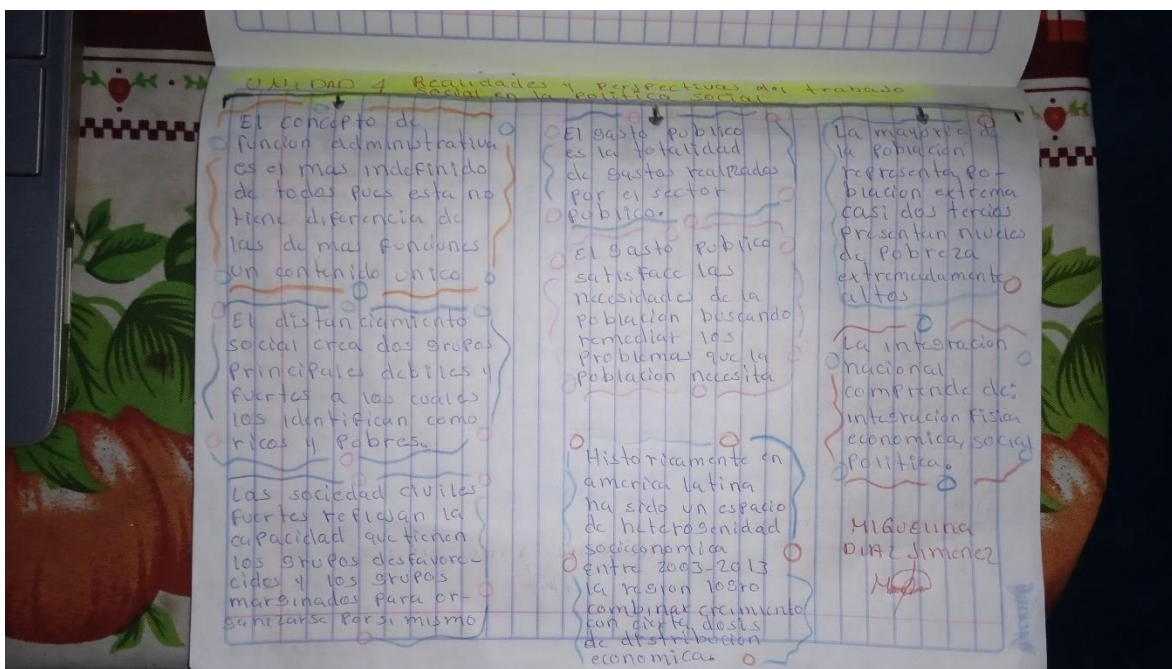 UNIDAD 4 Realidades y Perspectivas del trabajo
social en la politica social
El concepto de
funcion administrativa
es el mas indefinido
de todos pues esta no
tiene diferencia de
las de mas funciones
un contenido unico
El distanciamiento
social crea dos grupos
principales debiles y
fuertes a los cuales
los identifican como
ricos y pobres.
Las sociedad civiles
fuertes reflejan la
capacidad que tienen
los grupos desfavore-
cidos y los grupos
marginados para or-
ganizarse por si mismo
El gasto publico
es la totalidad
de gastos realizados
por el sector
publico.
El gasto publico
satisface las
necesidades de la
poblacion buscando
remediar los
problemas que la
poblacion necesita
Historicamente en
america latina
ha sido un espacio
de heterogenidad
socieconomica
entre 2003-2013
la region logro
combinar crecimiento
con cierta dosis
de distribucion
economica.
La mayoria de
la poblacion
representa po-
blacion extrema
casi dos tercios
presentan niveles
de pobreza
extremadamente
altos
La integracion
nacional
comprende de:
integracion fisica
economica, social
politica.
MIGUELINA
DIAZ Jimenez